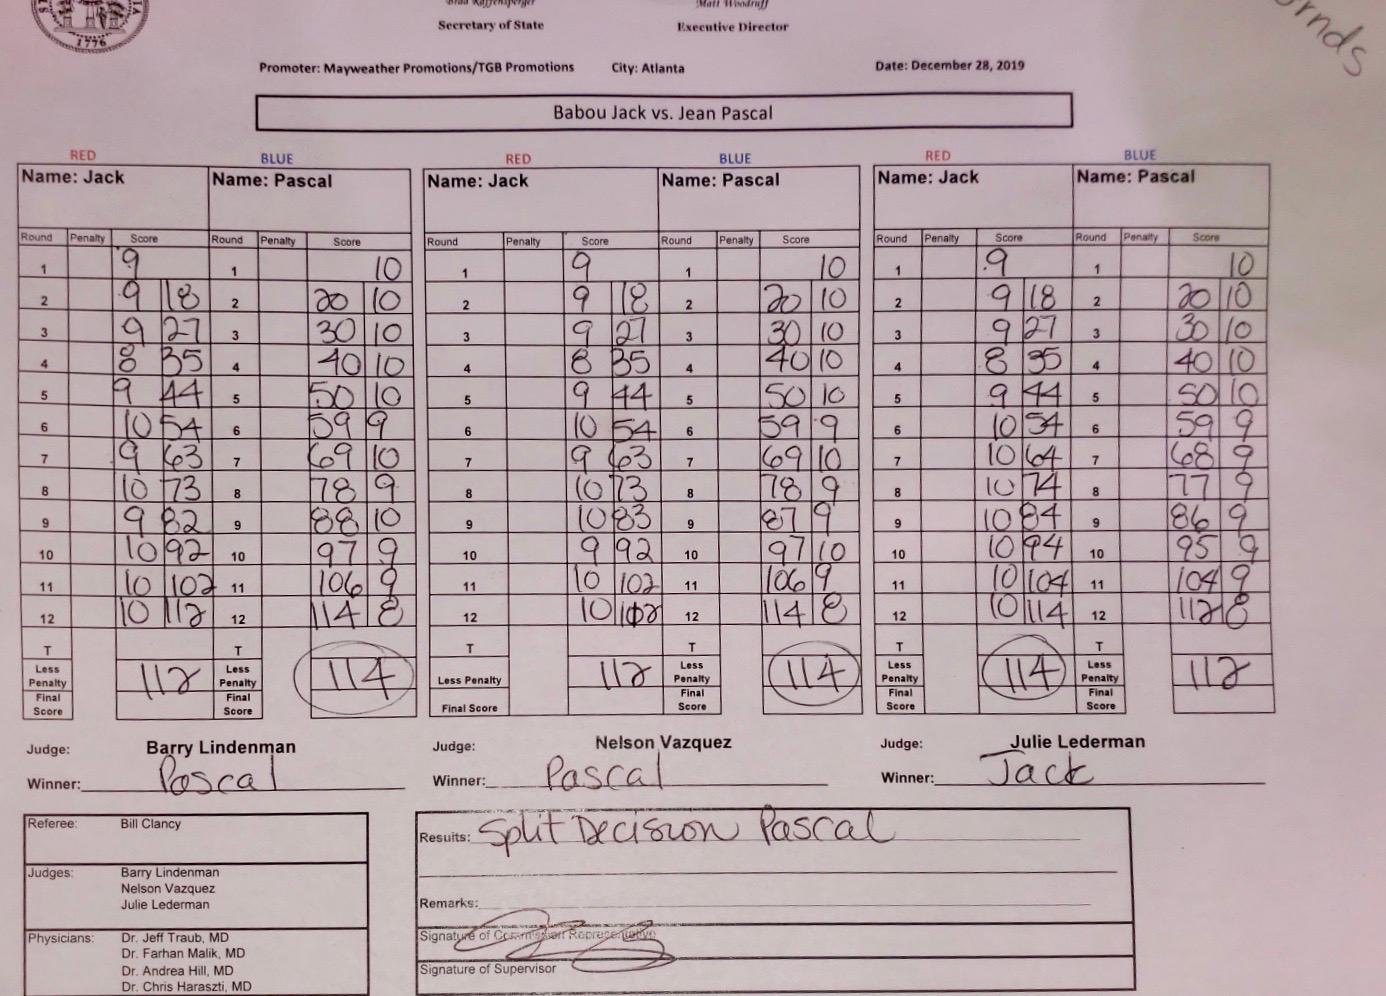 1776
Brad Raffensperger Matt Woodruff
Secretary of State Executive Director
Promoter: Mayweather Promotions/TGB Promotions City: Atlanta Date: December 28, 2019
Babou Jack vs. Jean Pascal
RED BLUE RED BLUE RED BLUE
Name: Jack Name: Pascal Name: Jack Name: Pascal Name: Jack Name: Pascal
Round Penalty Score Round Penalty Score Round Penalty Score Round Penalty Score Round Penalty Score Round Penalty Score
1 9 1 10 1 9 1 10 1 9 1 10
2 9 18 2 20 10 2 9 18 2 20 10 2 9 18 2 20 10
3 9 27 3 30 10 3 9 27 3 30 10 3 9 27 3 30 10
4 8 35 4 40 10 4 8 35 4 40 10 4 8 35 4 40 10
5 9 44 5 50 10 5 9 44 5 50 10 5 9 44 5 50 10
6 10 54 6 59 9 6 10 54 6 59 9 6 10 54 6 59 9
7 9 63 7 69 10 7 9 63 7 69 10 7 10 64 7 68 9
8 10 73 8 78 9 8 10 73 8 78 9 8 10 74 8 77 9
9 9 82 9 88 10 9 10 83 9 87 9 9 10 84 9 86 9
10 10 92 10 97 9 10 9 92 10 97 10 10 10 94 10 95 9
11 10 102 11 106 9 11 10 102 11 106 9 11 10 104 11 104 9
12 10 112 12 114 8 12 10 112 12 114 8 12 10 114 12 112 8
T T T T T T
Less Penalty 112 Less Penalty 114 Less Penalty 112 Less Penalty 114 Less Penalty 114 Less Penalty 112
Final Score Final Score Final Score Final Score Final Score Final Score
Judge: Barry Lindenman Judge: Nelson Vazquez Judge: Julie Lederman
Winner: Pascal Winner: Pascal Winner: Jack
Referee: Bill Clancy
Results: Split Decision Pascal
Judges: Barry Lindenman
Nelson Vazquez
Julie Lederman
Remarks:
Physicians: Dr. Jeff Traub, MD
Dr. Farhan Malik, MD
Dr. Andrea Hill, MD
Dr. Chris Haraszti, MD
Signature of Commission Representative
Signature of Supervisor